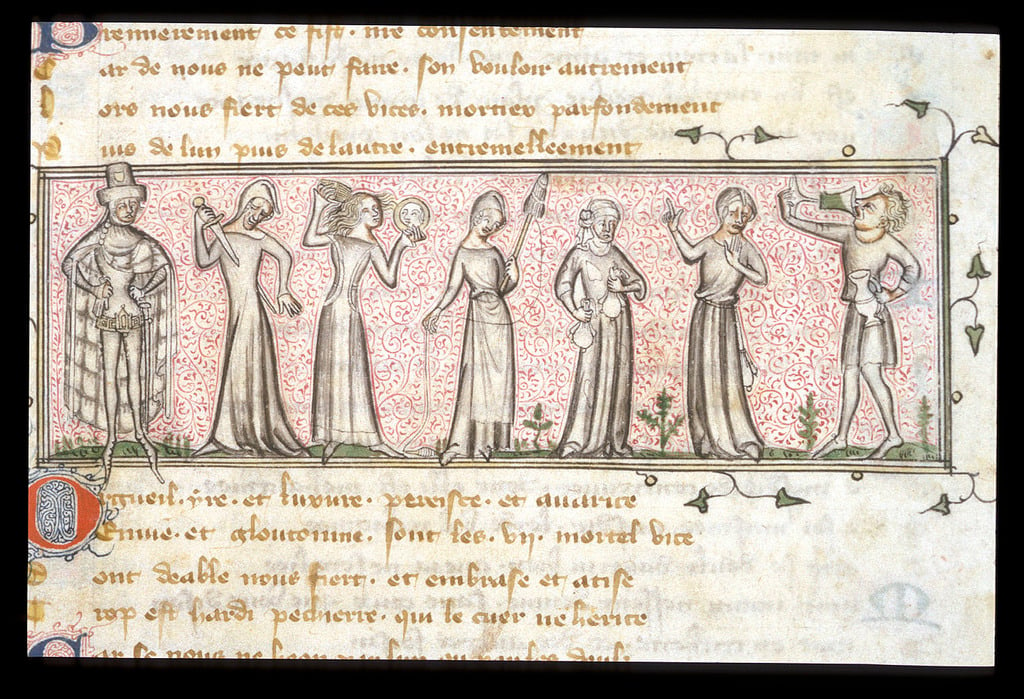 Premierement ce fist. nre consentement
Car de nous ne peut faire. son vouloir autrement
Lors nous fiert de ces vices. mortiex parfondement
Puis de lun puis de lautre. entremelleement
Orgueil. yre. et luxure. pereisce. et auarice
Enuie. et gloutonnie. sont les .vij. mortel vice
Dont deable nous fiert. et embrase et atise
Trop est hardi pecherre. qui le cuer ne herice
Car se nous ne